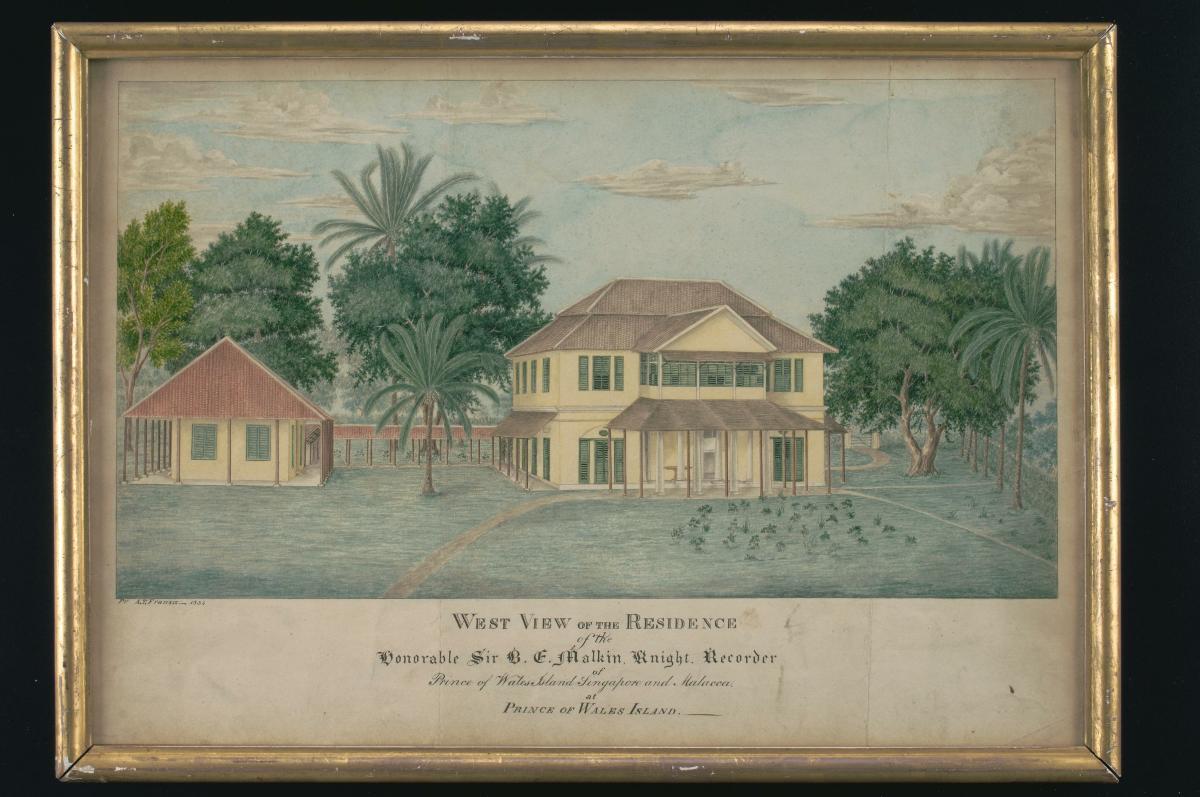 Pr A.T. Fransz 1834
WEST VIEW OF THE RESIDENCE
of the
Honorable Sir B. E. Malkin, Knight, Recorder
of
Prince of Wales Island Singapore and Malacca,
at
PRINCE OF WALES ISLAND.